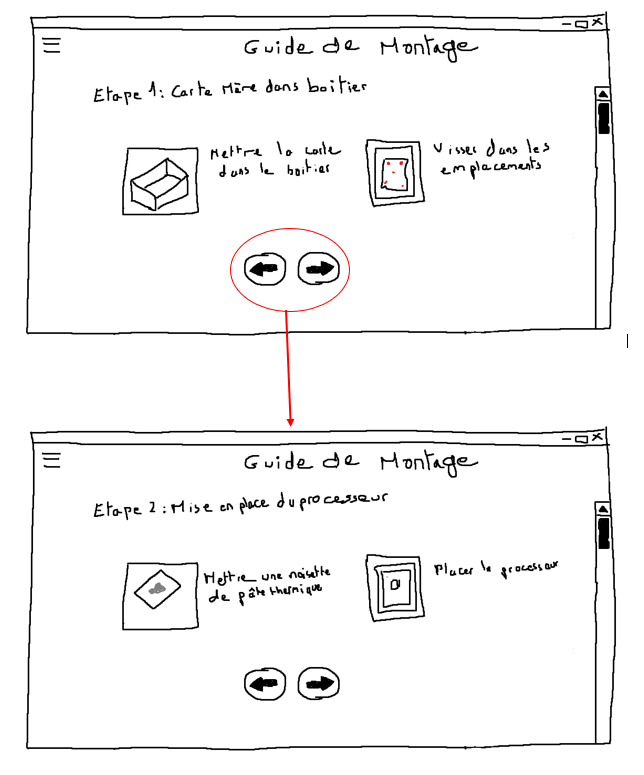 Guide de Montage
Etape 1: Carte Mère dans boitier
Mettre la carte
dans le boitier
Visser dans les
emplacements
Guide de Montage
Etape 2 : Mise en place du processeur
Mettre une noisette
de pâte thermique
Placer le processeur